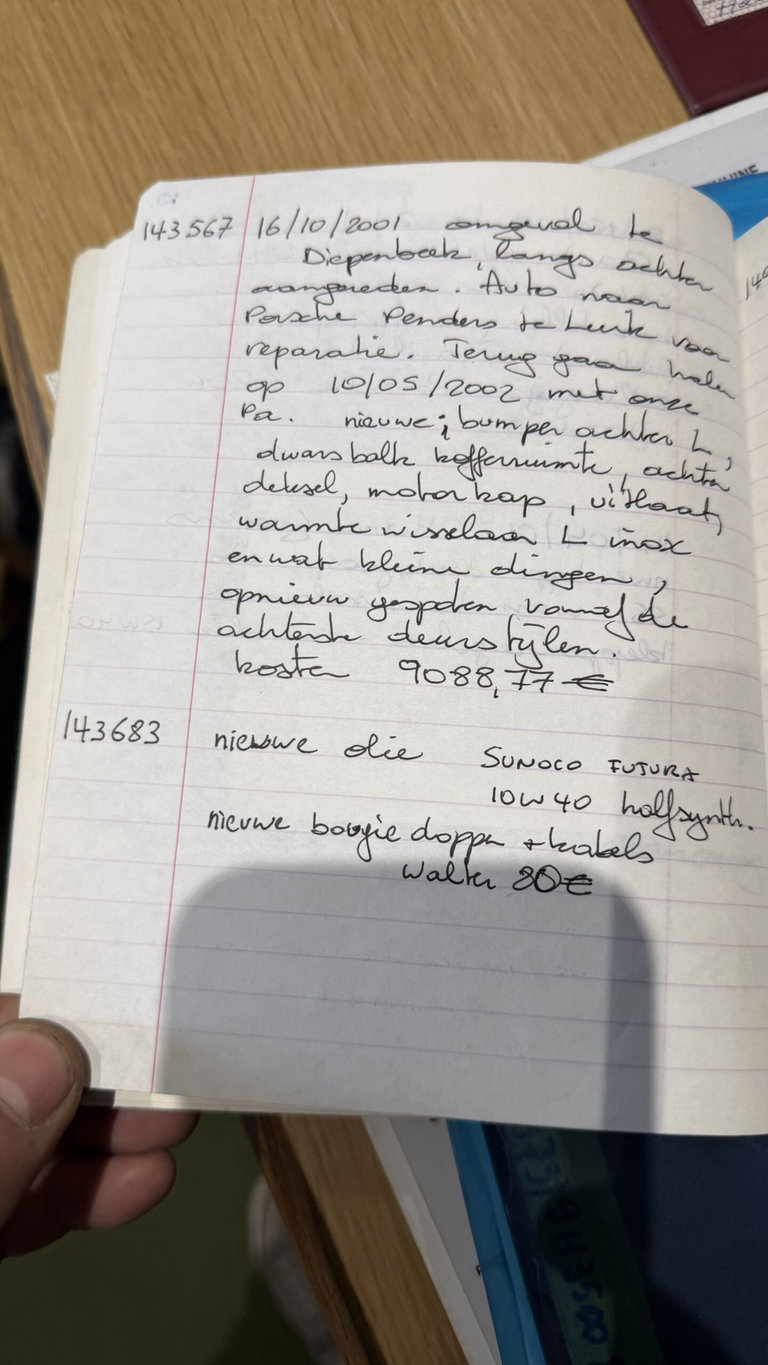 143567 16/10/2001 omgeval te
Diepenbeek, langs achter
aangereden. Auto naar
Porsche Penders te Luik voor
reparatie. Terug gaan halen
op 10/05/2002 met onze
Pa. nieuwe; bumper achter L,
dwarsbalk kofferruimte, achter
deksel, motorkap, uitlaat,
warmtewisselaar L inox
en wat kleine dingen,
opnieuw gespoten vanaf de
achterste deurstijlen.
kosten 9088,77 €
143683 nieuwe olie SUNOCO FUTURA
10W40 halfsynth.
nieuwe bougiedoppen + kabels
Walter 80€